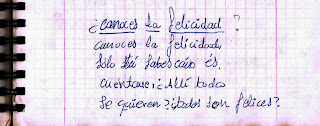 ¿conoces la felicidad?
conoces la felicidad,
sólo tú sabes cómo és.
cuéntame: ¿Allí todos
se quieren? ¿todos son felices?